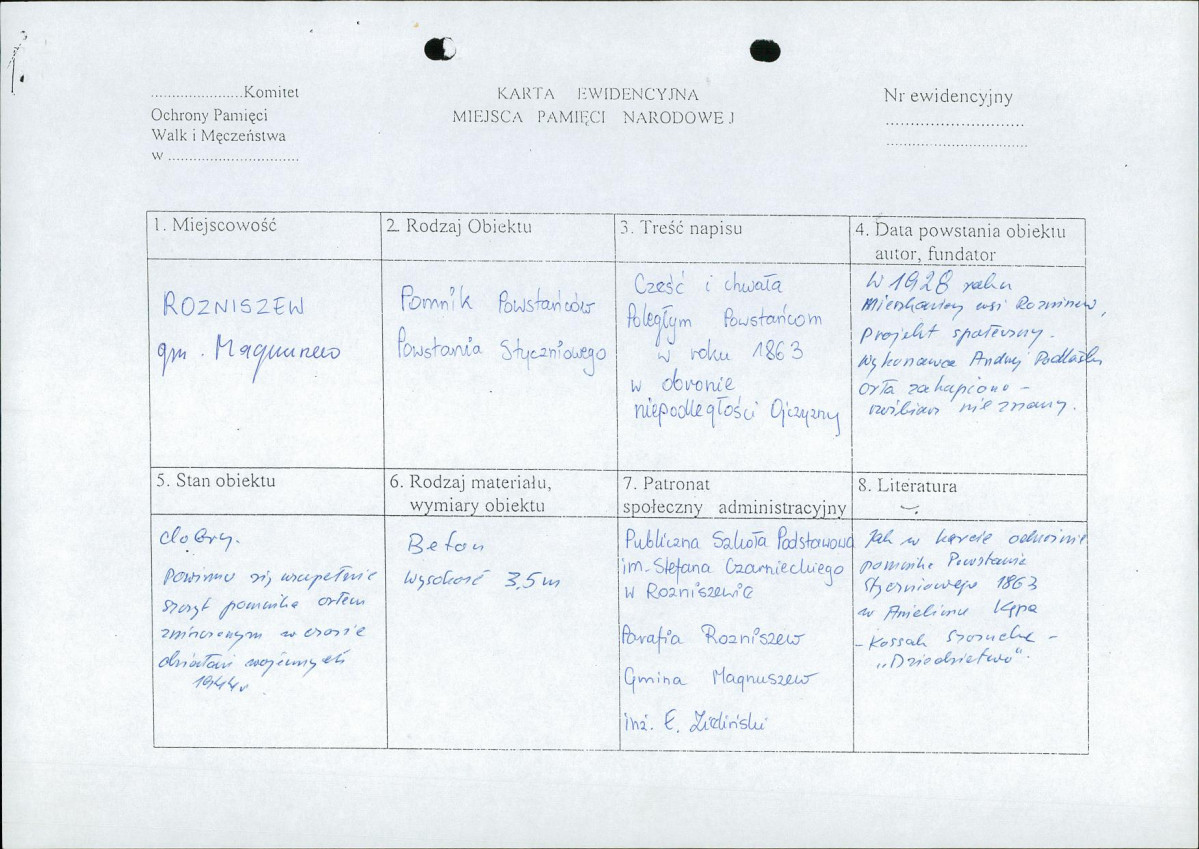 ......................Komitet
Ochrony Pamięci
Walk i Męczeństwa
w ...............................
KARTA EWIDENCYJNA
MIEJSCA PAMIĘCI NARODOWEJ
Nr ewidencyjny
.................................
.................................
1. Miejscowość
ROZNISZEW
gm. Magnuszew
2. Rodzaj Obiektu
Pomnik Powstańców
Powstania Styczniowego
3. Treść napisu
Cześć i chwała
Poległym Powstańcom
w roku 1863
w obronie
niepodległości Ojczyzny
4. Data powstania obiektu
autor, fundator
W 1928 roku
Mieszkańcy wsi Rozniszew,
projekt społeczny.
Wykonawca Andrzej
orła zakupiono -
nieznany.
5. Stan obiektu
dobry.
Powinno się uzupełnić
szczyt pomnika orłem
zniszczonym w czasie
działań wojennych
1944 r.
6. Rodzaj materiału,
wymiary obiektu
Beton
wysokość 3,5 m
7. Patronat
społeczny administracyjny
Publiczna Szkoła Podstawowa
im. Stefana Czarnieckiego
w Rozniszewie
Parafia Rozniszew
Gmina Magnuszew
inż. E. Zieliński
8. Literatura
Jak w karcie odnośnie
pomnika Powstania
Styczniowego 1863
w Anielinie Kępa
- Kossak Szczucka -
"Dziedzictwo".